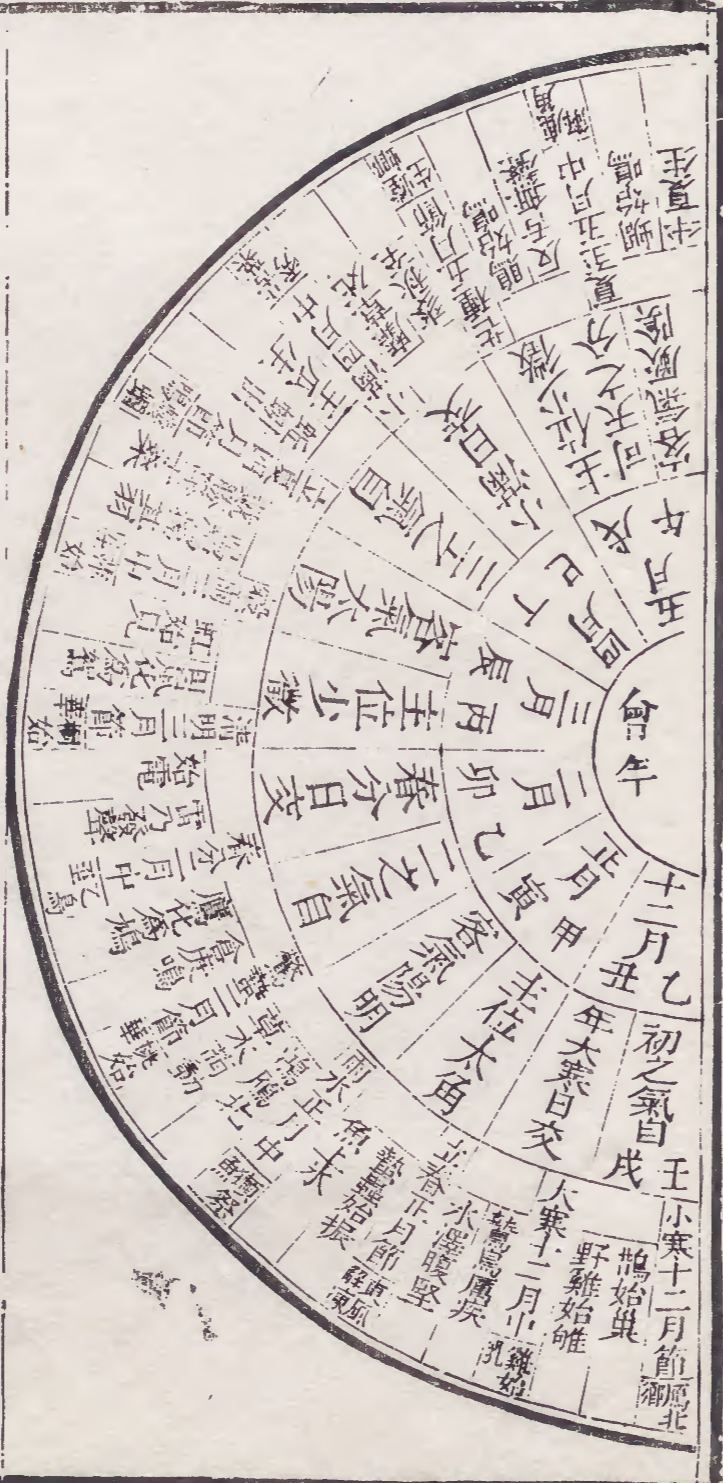 年
十二月乙丑
正月甲寅
二月乙卯
三月丙辰
四月丁巳
五月戊午
初之氣自壬戌
年大寒日交
主位太角
客氣陽明
二之氣自
春分日交
主位少徵
客氣太陽
三之氣自
小滿日交
主位少徵
司天之分
客氣厥陰
小寒十二月節
鴈北鄉
鵲始巢
野雞始雊
大寒十二月中
雞始乳
鷙鳥厲疾
水澤腹堅
立春正月節
東風解凍
蟄蟲始振
魚上氷
雨水正月中
獺祭魚
鴻鴈北
草木萌動
驚蟄二月節
桃始華
倉庚鳴
鷹化為鳩
春分二月中
乙鳥至
雷乃發聲
始電
清明三月節
桐始華
田鼠化為鴽
虹始見
穀雨三月中
萍始生
鳴鳩拂羽
戴勝降桑
立夏四月節
螻蟈鳴
蚯蚓出
王瓜生
小滿四月中
苦菜秀
靡草死
麥秋至
芒種五月節
螳蜋生
鵙始鳴
反舌無聲
夏至五月中
鹿角解
蜩始鳴
半夏生